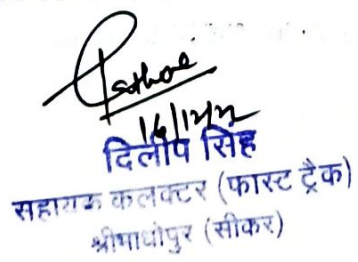 16/12/22
दिलीप सिंह
सहायक कलक्टर (फास्ट ट्रैक)
श्रीमाधोपुर (सीकर)